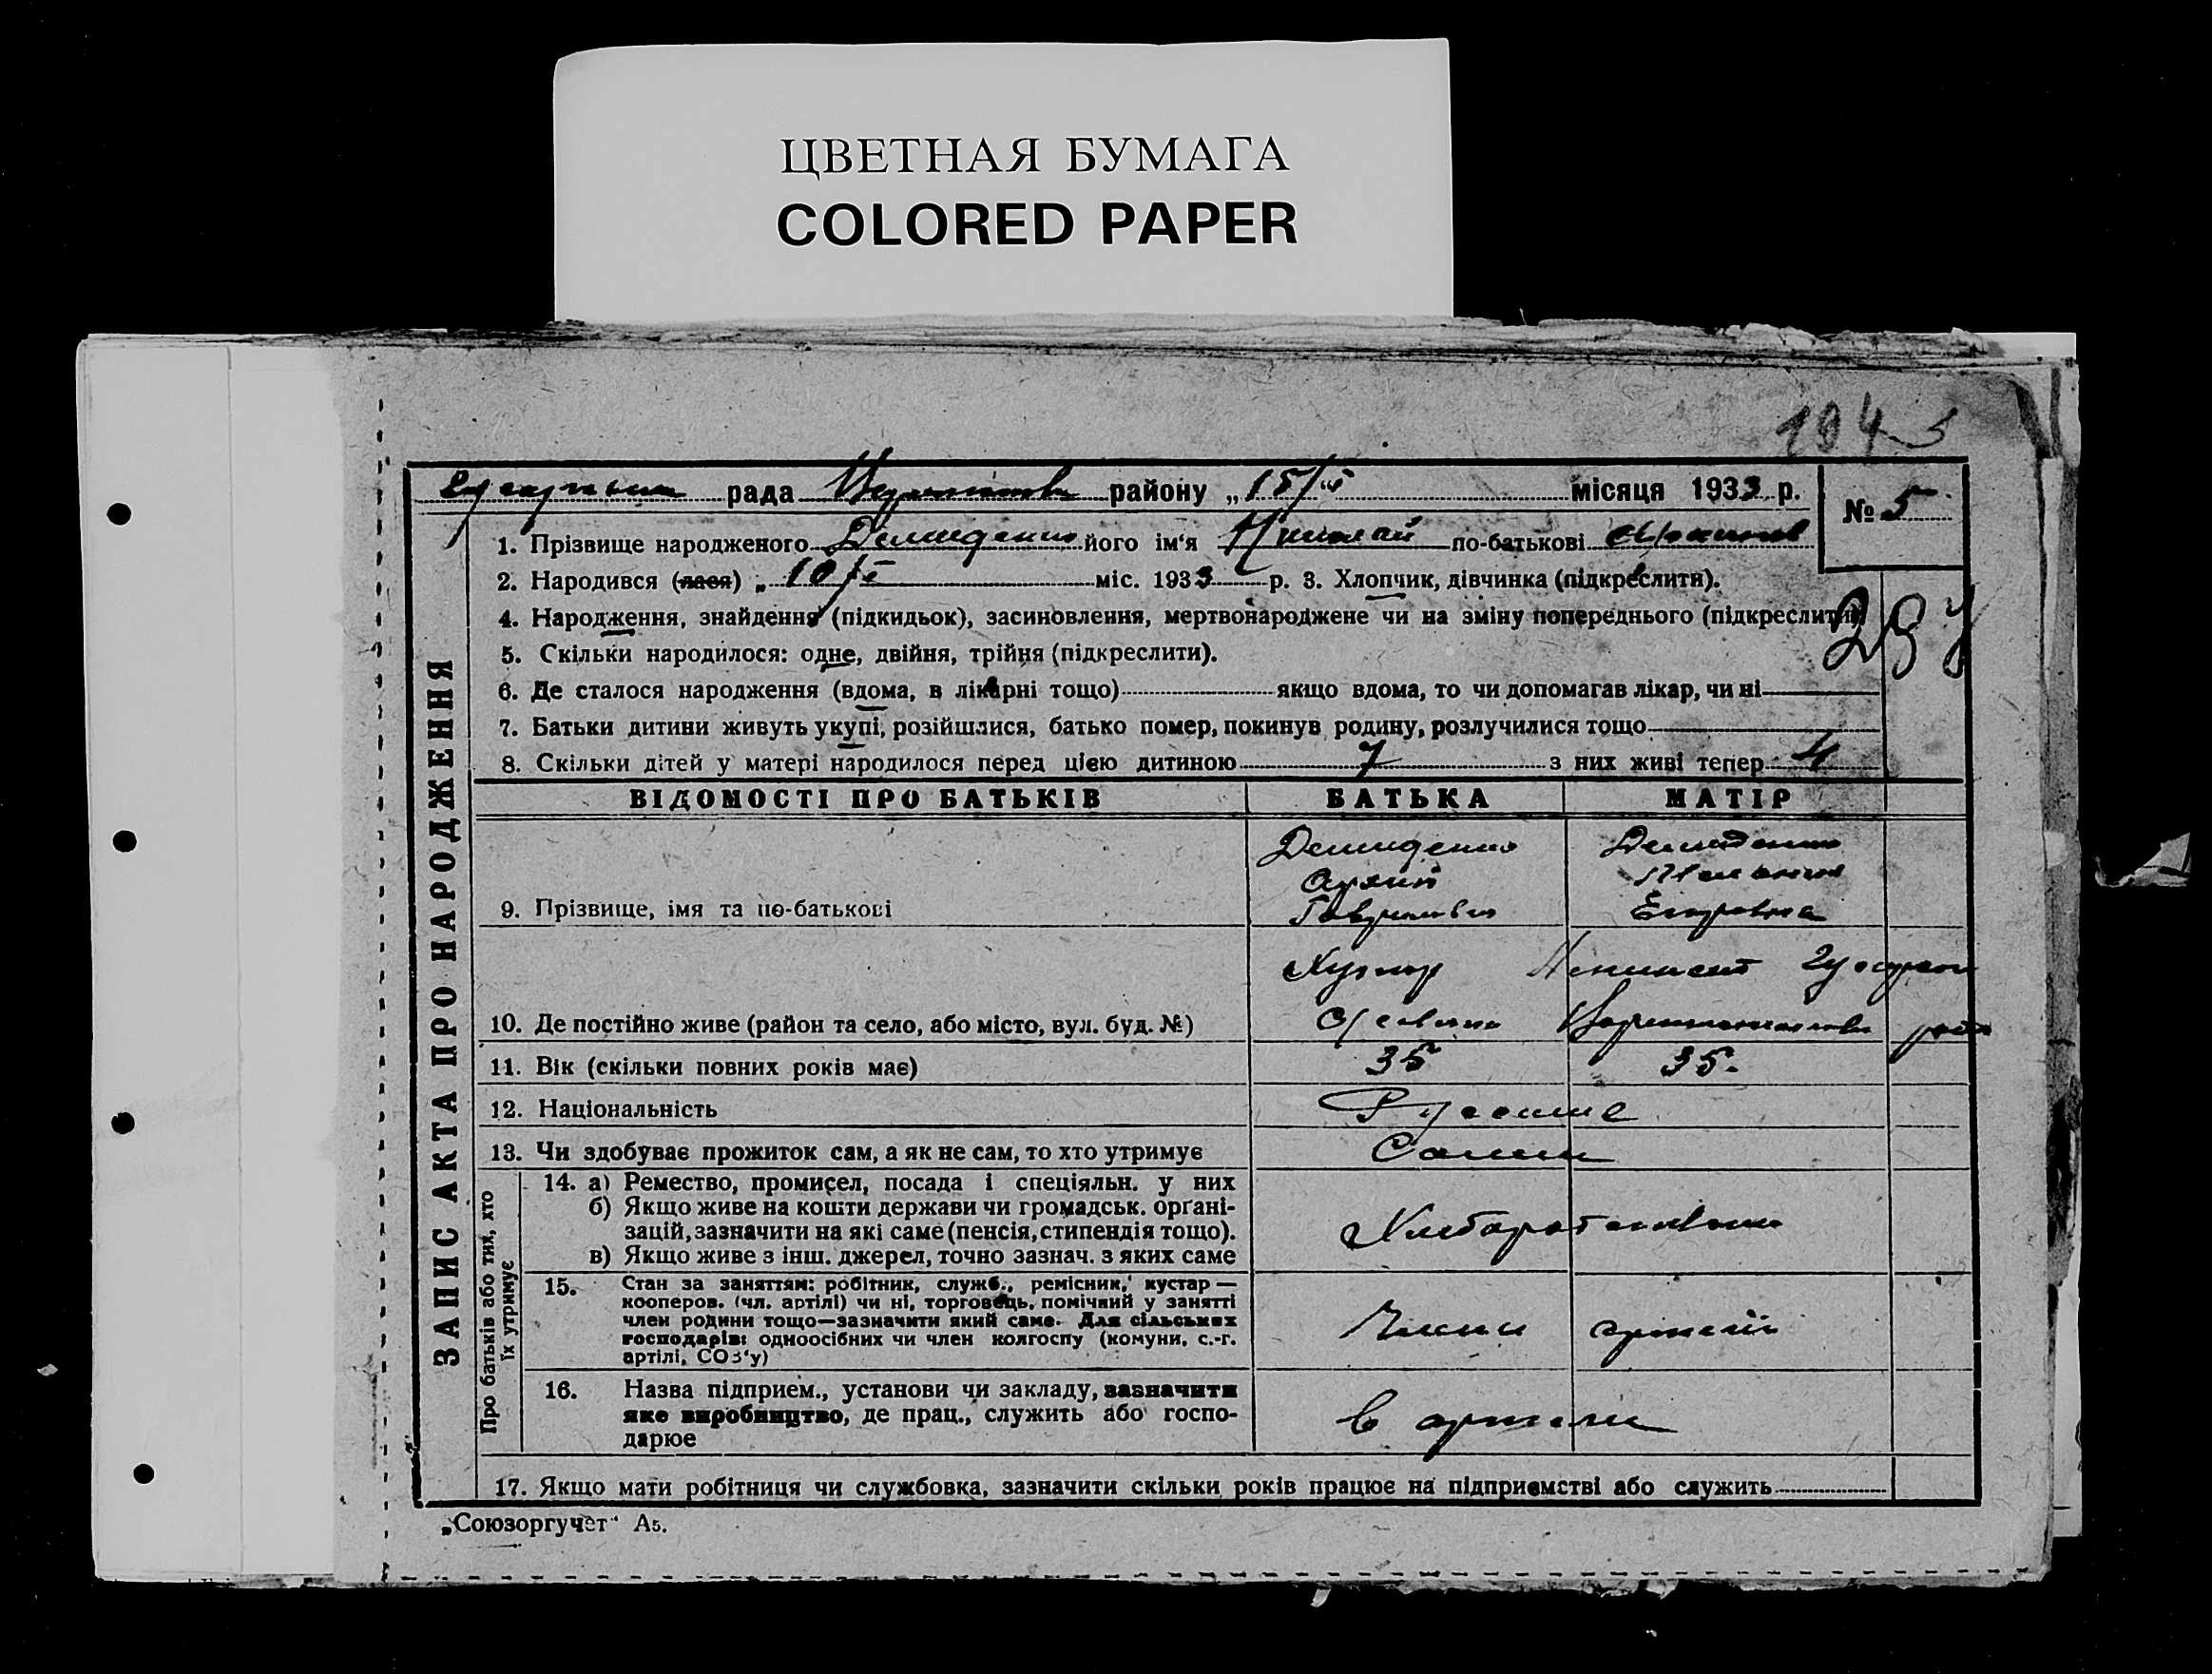 ЦВЕТНАЯ БУМАГА
COLORED PAPER
194
рада району „15/ місяця 1933 р.
№ 5
1. Прізвище народженого Демиденко його ім'я Николай по-батькові
2. Народився (лася) „10/I міс. 1933 р. 3. Хлопчик, дівчинка (підкреслити).
4. Народження, знайдення (підкидьок), засиновлення, мертвонароджене чи на зміну попереднього (підкреслити)
5. Скільки народилося: одне, двійня, трійня (підкреслити).
6. Де сталося народження (вдома, в лікарні тощо) якщо вдома, то чи допомагав лікар, чи ні
7. Батьки дитини живуть укупі, розійшлися, батько помер, покинув родину, розлучилися тощо
8. Скільки дітей у матері народилося перед цією дитиною 7 з них живі тепер 4
ЗАПИС АКТА ПРО НАРОДЖЕННЯ
ВІДОМОСТІ ПРО БАТЬКІВ БАТЬКА МАТІР
Демиденко Демиденко
9. Прізвище, імя та по-батькові Гаврилович Егоровна
Хутор
10. Де постійно живе (район та село, або місто, вул. буд. №)
11. Вік (скільки повних років має) 35 35.
12. Національність Русские
13. Чи здобуває прожиток сам, а як не сам, то хто утримує Сами
Про батьків або тих, хто їх утримує
14. а) Ремество, промисел, посада і спеціяльн. у них
б) Якщо живе на кошти держави чи громадськ. орґані-
зацій, зазначити на які саме (пенсія, стипендія тощо).
в) Якщо живе з інш. джерел, точно зазнач. з яких саме
15. Стан за заняттям: робітник, служб., ремісник, кустар —
кооперов. (чл. артілі) чи ні, торговець, помічний у занятті
член родини тощо—зазначити який саме. Для сільських
господарів: одноосібних чи член колгоспу (комуни, с.-г.
артілі, СОЗ'у)
Члени артели
16. Назва підприєм., установи чи закладу, зазначити
яке виробництво, де прац., служить або госпо-
дарює
в артели
17. Якщо мати робітниця чи службовка, зазначити скільки років працює на підприємстві або служить
„Союзоргучет" А5.